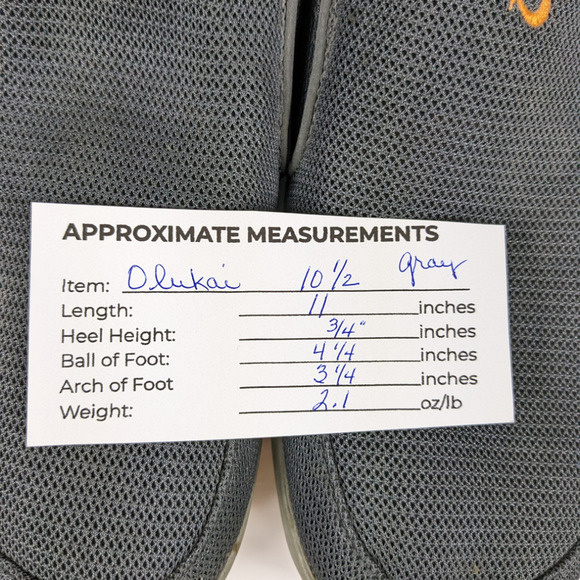 APPROXIMATE MEASUREMENTS
Item: Olukai 10 1/2 gray
Length: 11 inches
Heel Height: 3/4" inches
Ball of Foot: 4 1/4 inches
Arch of Foot 3 1/4 inches
Weight: 2.1 oz/lb